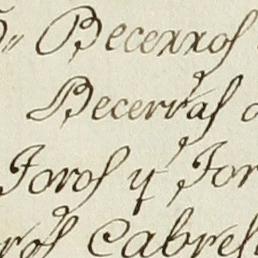 Becerros
Becerras
Toros y Tor
ros Cabres